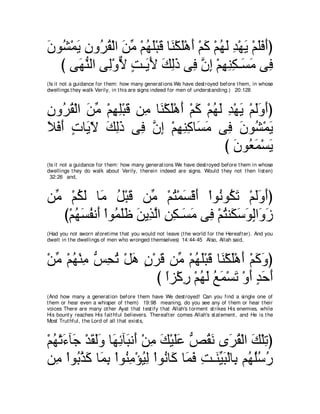 (أَفَلَمْ يَهْدِ لَهُمْ كَمْ أَهْلَكْنَا قَبْلَهُمْ مِّنَ الْقُرُونِ يَمْشُونَ
فِى مَسَـكِنِهِمْ إِنَّ فِى ذَلِكَ لأَيَـتٍ لاٌّوْلِى النُّهَى )
(Is it not a guidance for them: how many generations We have destroyed before them, in whose
dwellings they walk Verily, in this are signs indeed for men of understanding.) 20:128
(أَوَلَمْ يَهْدِ لَهُمْ كَمْ أَهْلَكْنَا مِن قَبْلِهِمْ مِّنَ الْقُرُونِ
يَمْشُونَ فِى مَسَاكِنِهِمْ إِنَّ فِى ذَلِكَ لأَيَاتٍ أَفَلاَ
يَسْمَعُونَ )
(Is it not a guidance for them: how many generations We have destroyed before them in whose
dwellings they do walk about Verily, therein indeed are signs. Would they not then listen)
32:26 and,
(أَوَلَمْ تَكُونُواْ أَقْسَمْتُمْ مِّن قَبْلُ مَا لَكُمْ مِّن
زَوَالٍوَسَكَنتُمْ فِى مَسَـكِنِ الَّذِينَ ظَلَمُواْ أَنفُسَهُمْ)
(Had you not sworn aforetime that you would not leave (the world for the Hereafter). And you
dwelt in the dwellings of men who wronged themselves) 14:44-45 Also, Allah said,
(وَكَمْ أَهْلَكْنَا قَبْلَهُمْ مِّن قَرْنٍ هَلْ تُحِسُّ مِنْهُمْ مِّنْ
أَحَدٍ أَوْ تَسْمَعُ لَهُمْ رِكْزاً )
(And how many a generation before them have We destroyed! Can you find a single one of
them or hear even a whisper of them) 19:98 meaning, do you see any of them or hear their
voices There are many other Ayat that testify that Allah's torment strikes His enemies, while
His bounty reaches His faithful believers. Thereafter comes Allah's statement, and He is the
Most Truthful, the Lord of all that exists,
(تِلْكَ الْقُرَى نَقُصُّ عَلَيْكَ مِنْ أَنبَآئِهَا وَلَقَدْ جَآءَتْهُمْ
رُسُلُهُم بِالْبَيِّنَـتِ فَمَا كَانُواْ لِيُؤْمِنُواْ بِمَا كَذَّبُواْ مِن